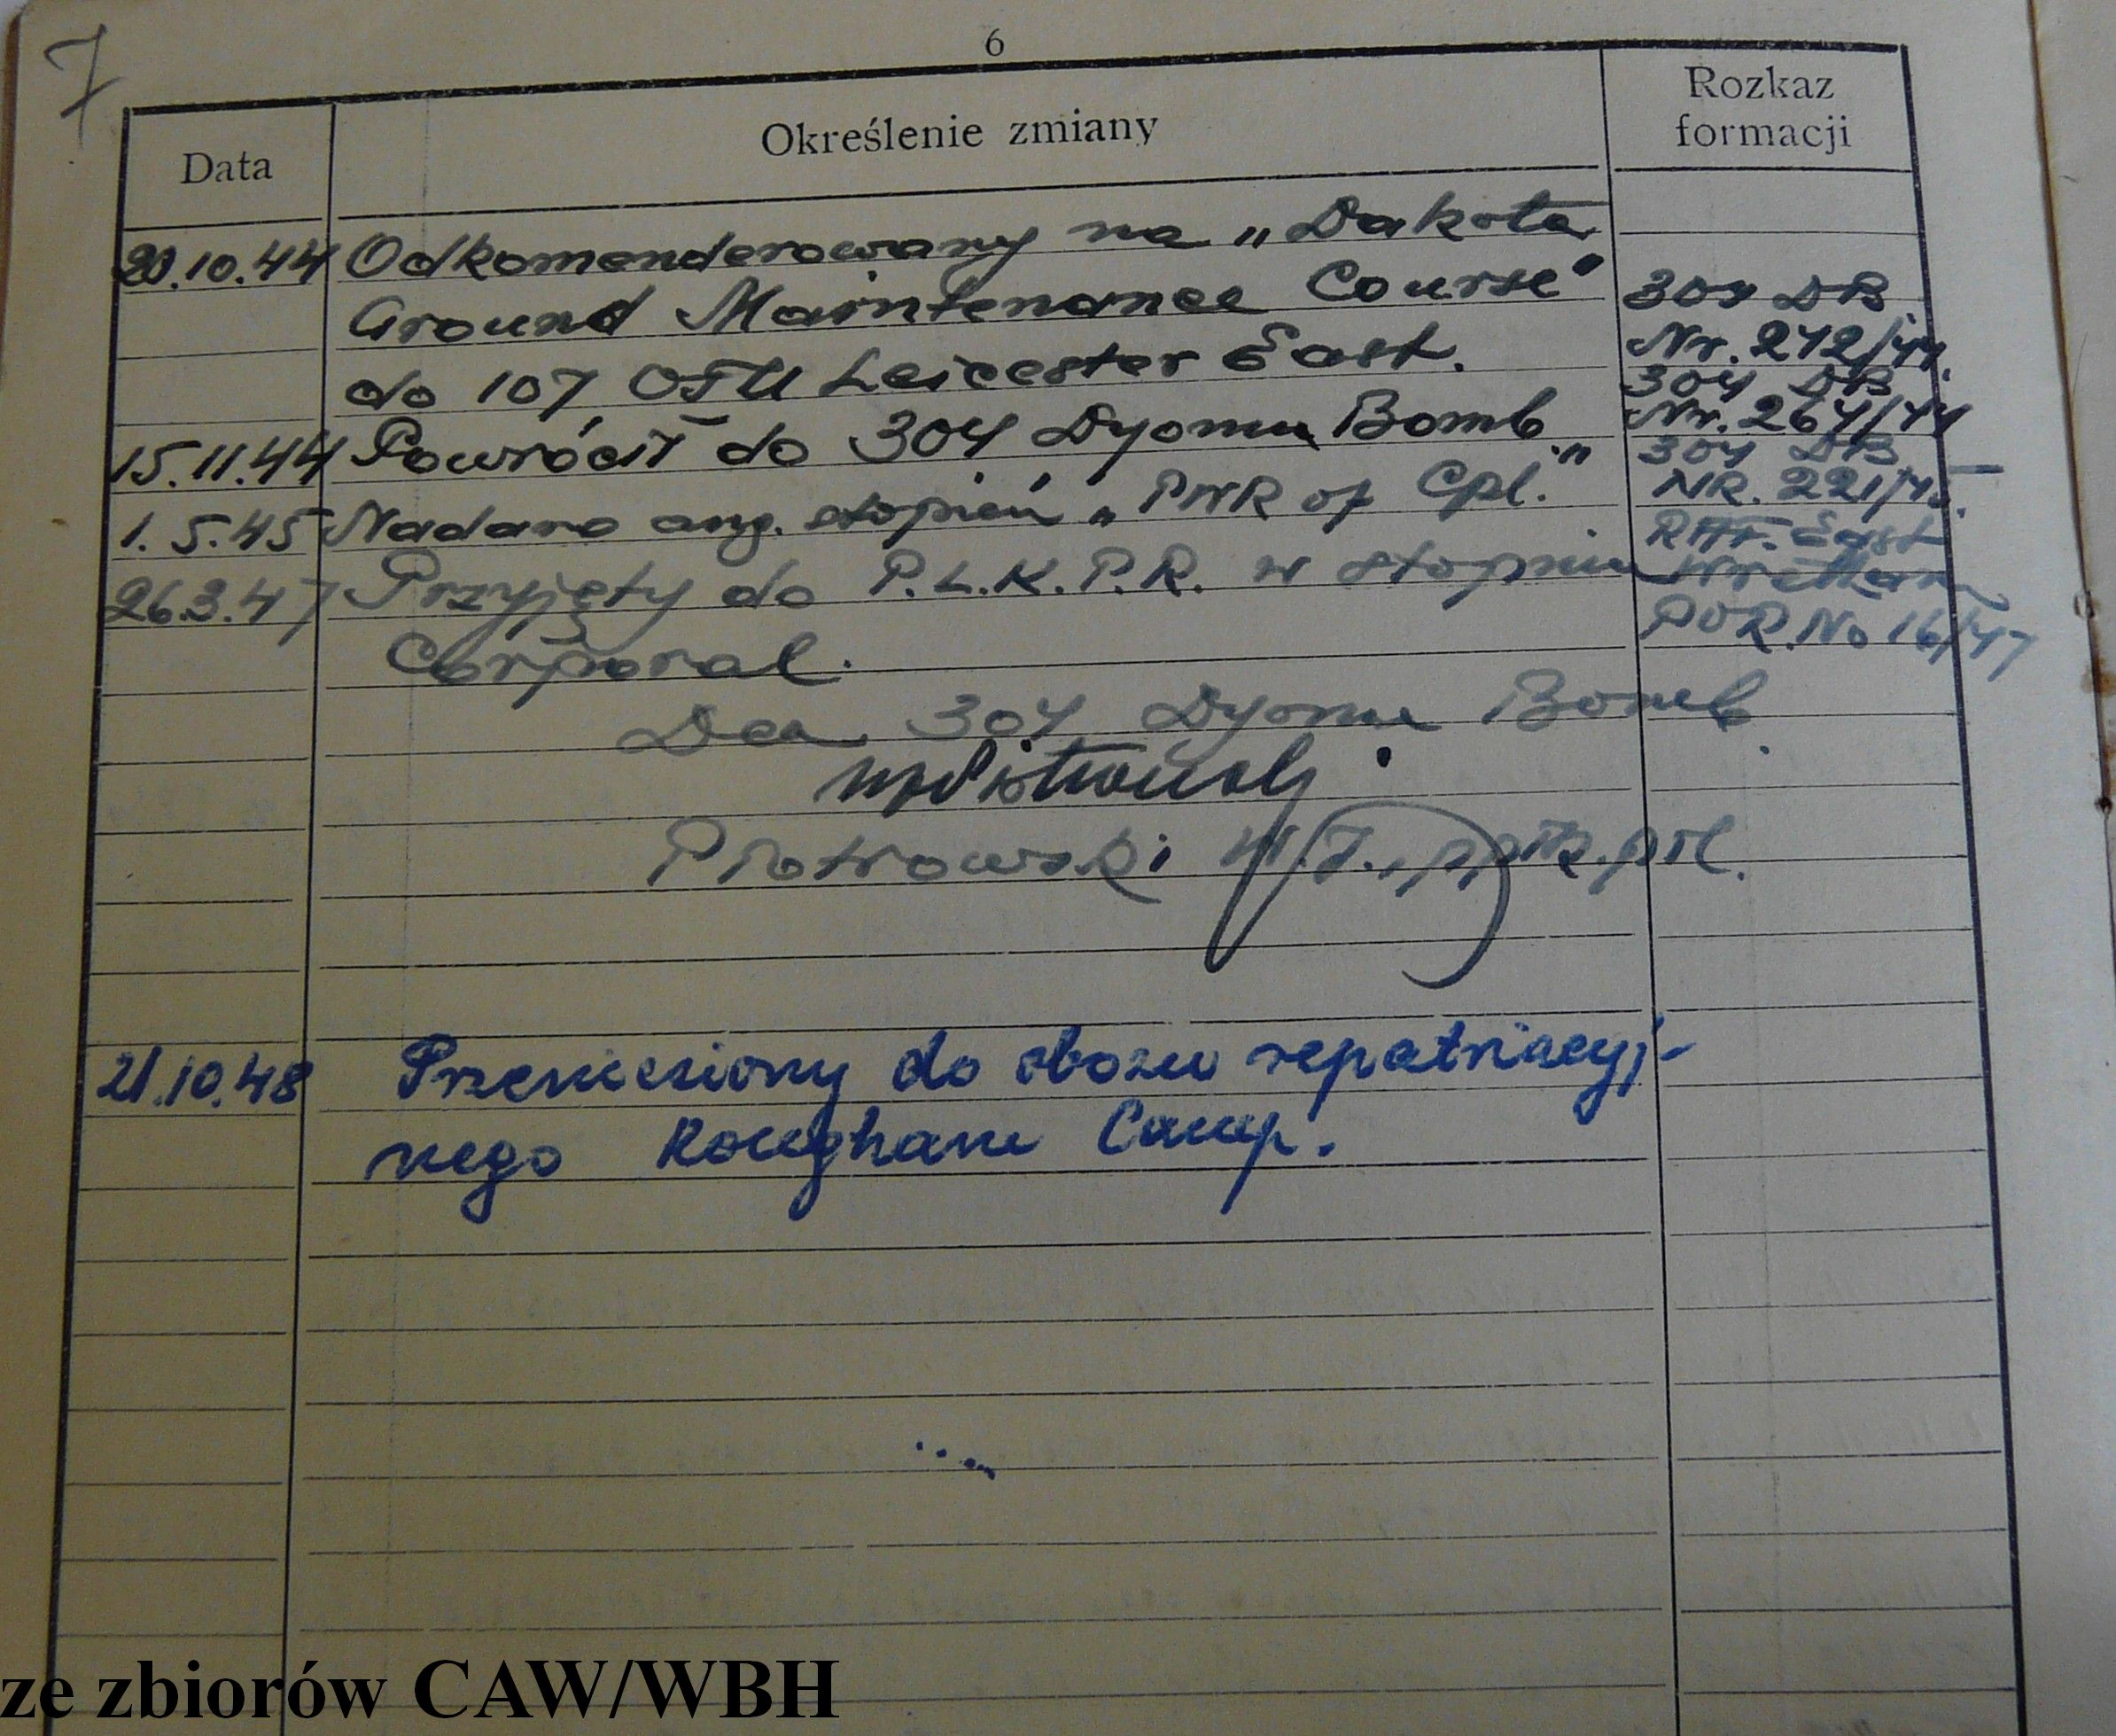 7
6
Data
Określenie zmiany
Rozkaz
formacji
20.10.44 Odkomenderowany na „Dakota
Ground Maintenance Course"
304 DB
do 107 OTU Leicester East.
Nr. 242/44.
304 DB
15.11.44 Powrócił do 304 Dyonu Bomb.
Nr. 264/44
304 DB
1.5.45 Nadano ang. stopień „PWR of Cpl."
NR. 221/45.
RAF. East
26.3.47 Przyjęty do P.L.K.P.R. w stopniu
Wretham
Corporal.
POR. No 16/47
Dca 304 Dyonu Bomb.
Piotrowski W.J., ppłk. pil.
21.10.48 Przeniesiony do obozu repatriacyj-
nego Rougham Camp.
ze zbiorów CAW/WBH